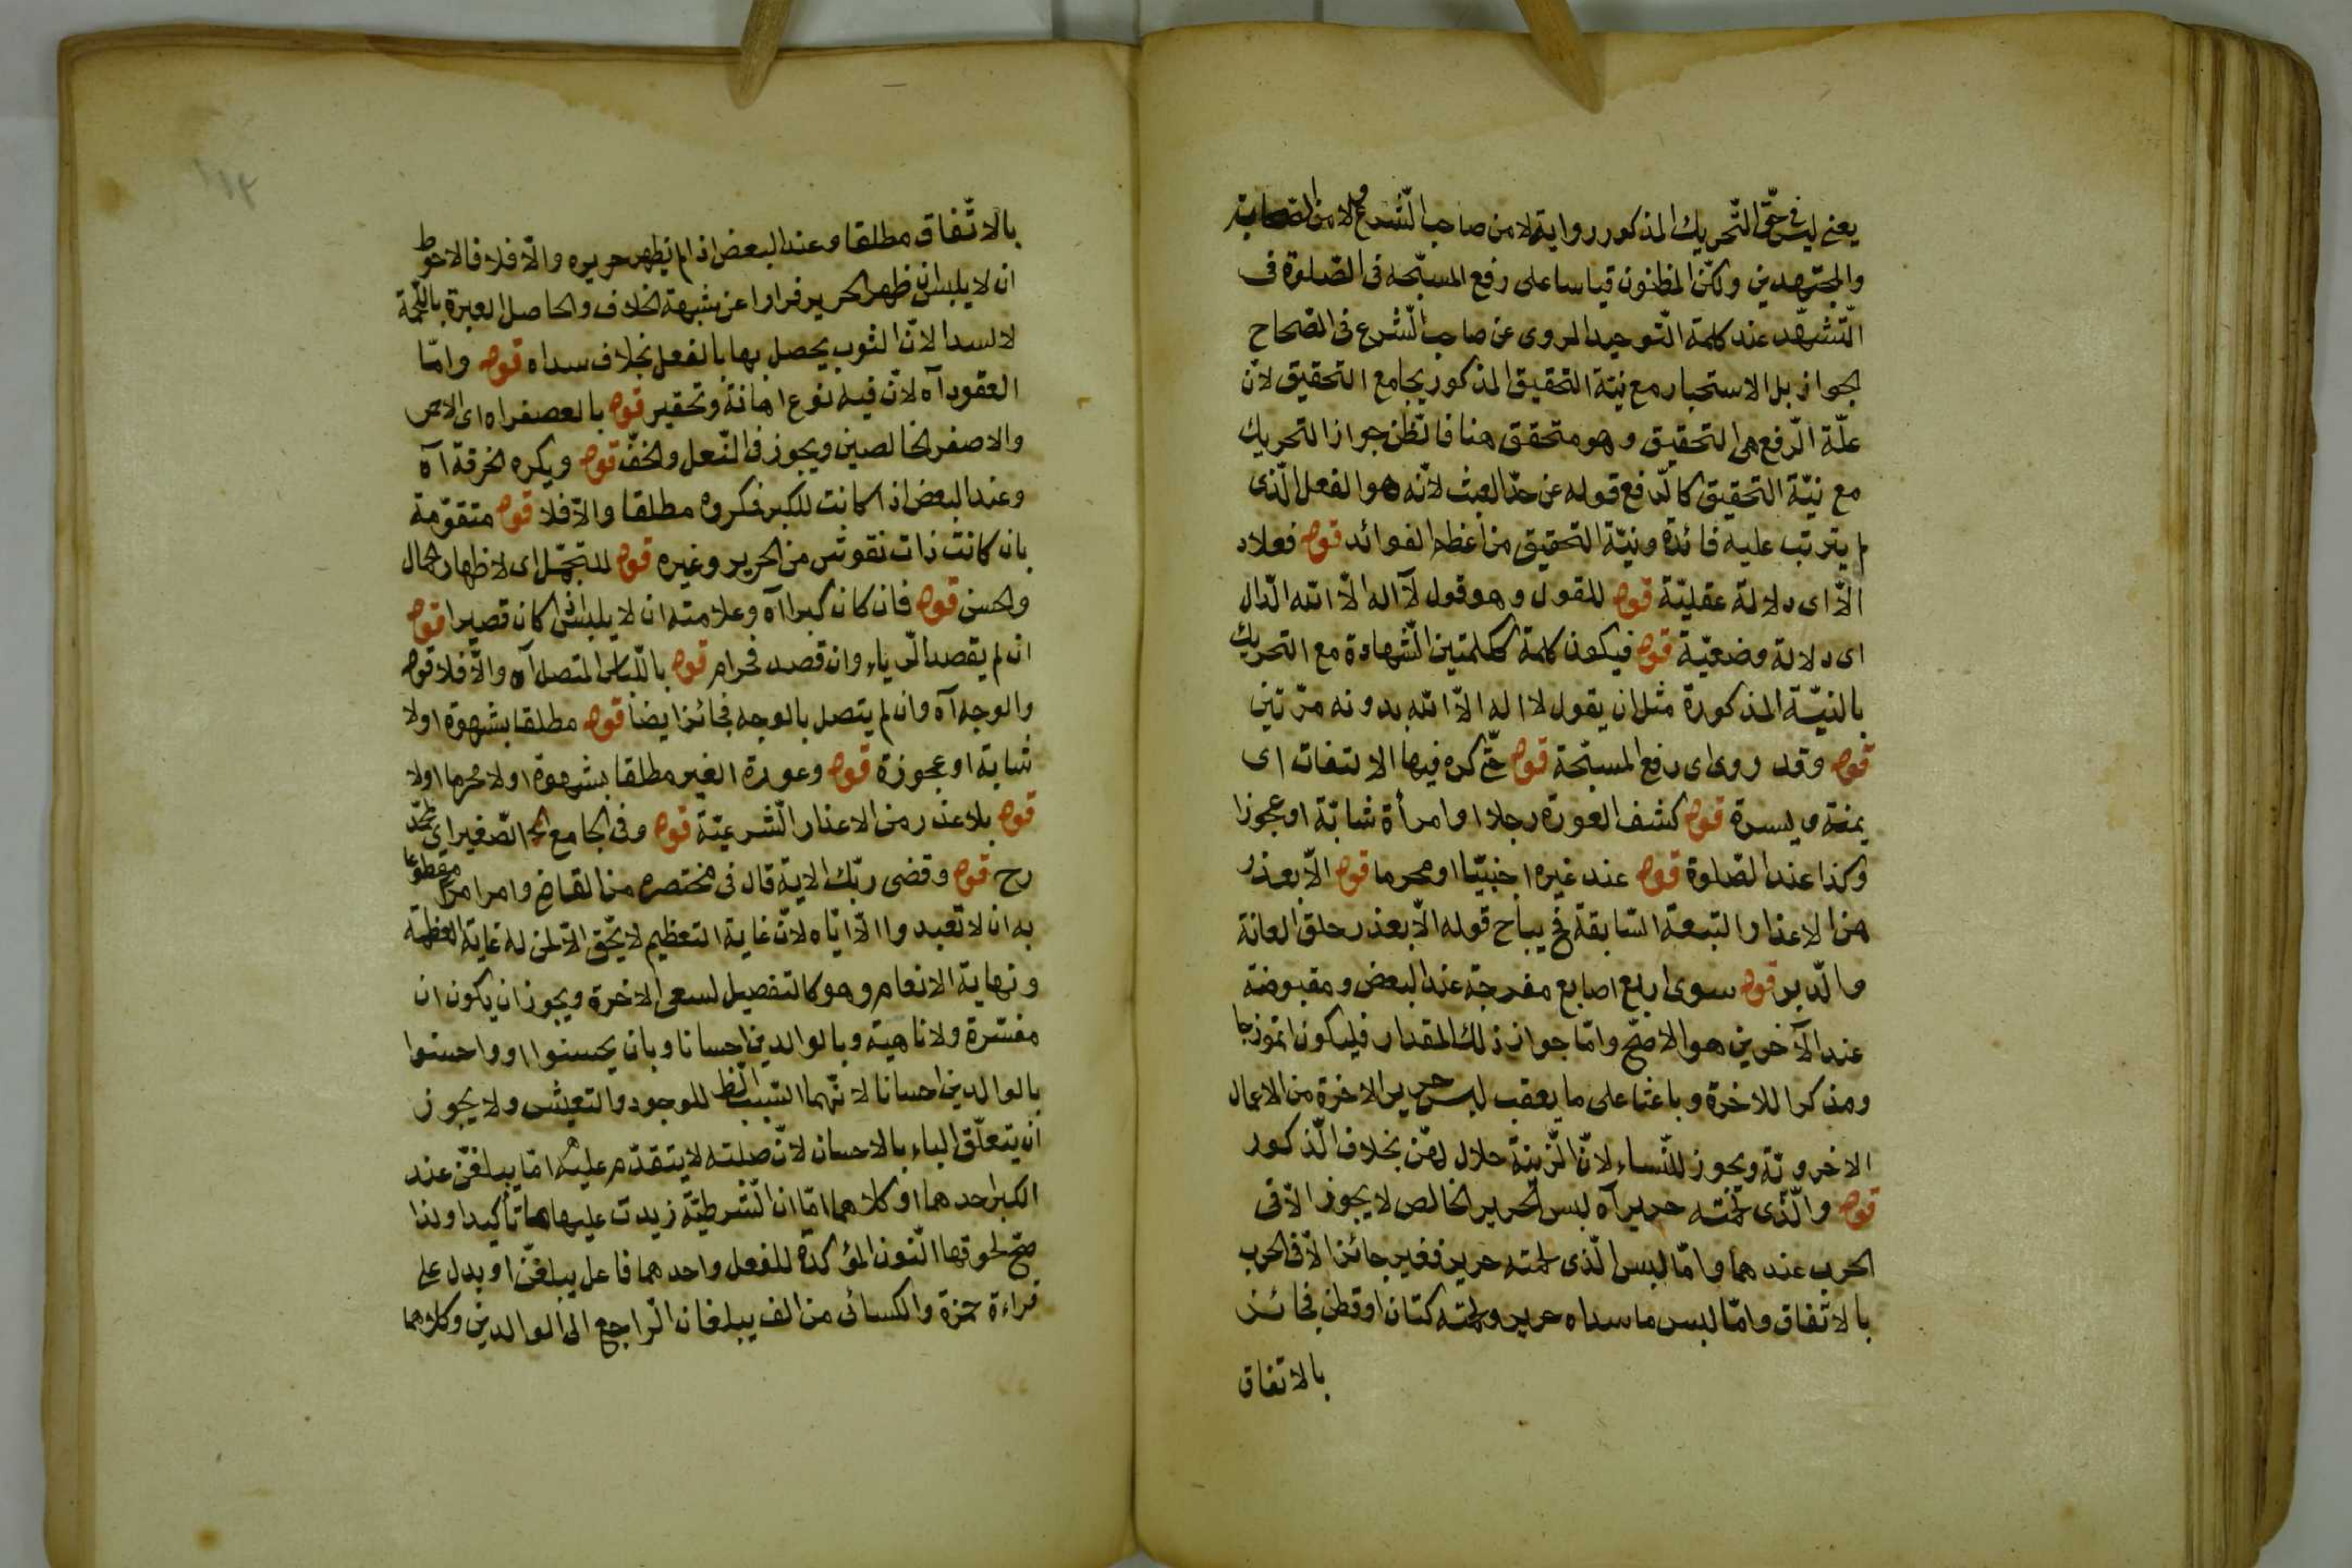 يعنى ليس فى حقّ التّحريك المذكور رواية لا من صاحب الشّرع ولا من الصحابة
والمجتهدين ولكنّ المظنون قياسا على رفع المسبّحه فى الصّلوة فى
التّشهّد عند كلمة التّوحيد المروى عن صاحب الشّرع فى الصّحاح
الجواز بل الاستحبار مع نيّة التحقيق المذكور بجامع التحقيق لانّ
علّة الرّفع هى التحقيق وهو متحقق هنا فالظّن جواز التحريك
مع نيّة التحقيق كالدّفع قوله عن حدّ العبث لانّه هو الفعل الّذى
لم يترتب عليه فائدة ونيّة التحقيق من اعظم الفوائد قوله فعلاد
الّا اى دلالة عقليّة قوله للقول وهو قول لآ اله الّا الله الدّال
اى دلالة وضعيّة قوله فيكون كلمة ككلمتين الشّهادة مع التحريك
بالنيّة المذكورة مثل ان يقول لا اله الّا الله بدونه مرّتين
قوله وقد روى اى رفع المسبّحة قوله حتّى كره فيها الالتفات اى
يمنة ويسرة قوله كشف العورة رجلا او امرأة شابّة او عجوزا
وكذا عند الصّلوة قوله عند غيره اجنبيّا او محرما قوله الّا بعذر
من الاعذار التسعة السّابقة فح يباح قوله الّا بعذر حلق العانة
والدّبر قوله سوى اربع اصابع مفرجة عند البعض ومقبوضة
عند الآخرين هو الاصحّ وامّا جواز ذلك المقدار فليكون انموزجا
ومذكرا للاخرة وباعثا على ما يعقب لبس حرير الاخرة من الاعمال
الاخرويّة ويجوز للنّساء لانّ الزّينة حلال لهنّ بخلاف الذّكور
قوله والّذى لحمته حرير آه لبس الحرير الخالص لا يجوز الّا فى
الحرب عندهما وامّا لبس الّذى لحمته حرير فغير جائز الّا فى الحرب
بالاتّفاق وامّا لبس ما سداه حرير ولحمته كتان او قطن فجائز
بالاتفاق
بالاتّفاق مطلقا وعند البعض اذا لم يظهر حريره والّا فلا فالاحوط
ان لا يلبس ان ظهر الحرير فرارا عن شبهة الخلاف والحاصل العبرة باللّحمة
لا لسدا لانّ الثوب يحصل بها بالفعل بخلاف سداه قوله وامّا
العقود آه لانّ فيه نوع اهانة وتحقير قوله بالعصفر اه اى الاحمر
والاصفر الخالصين ويجوز فى النّعل والخفّ قوله ويكره الخرقة آه
وعند البعض اذا كانت للكبر فكروه مطلقا والّا فلا قوله متقوّمة
بان كانت ذات نقوش من الحرير وغيره قوله للتجمّل اى لاظهار الجمال
والحسن قوله فان كان كبرا آه وعلامته ان لا يلبس اذا كان قصيرا قوله
ان لم يقصد الرّياء وان قصد فحرام قوله باللّباس المتصل آه والّا فلا قوله
والوجه آه وان لم يتصل بالوجه فجائز ايضا قوله مطلقا بشهوة اولا
شابة او عجوزة قوله وعورة الغير مطلقا بشهوة اولا محرما اولا
قوله بلا عذر من الاعذار الشّرعيّة قوله وفى الجامع الصّغير اى لمحمّد
رح قوله وقضى ربّك الاية قال فى مختصره من القاضى وامر امرا مقطوعا
به ان لا تعبدوا الّا ايّاه لانّ غاية التعظيم لا يحقّ الّا لمن له غاية العظمة
ونهاية الانعام وهو كالتفصيل لسعى الاخرة ويجوز ان يكون ان
مفسّرة ولا ناهية وبالوالدين احسانا وبان يحسنوا او واحسنوا
بالوالدين احسانا لانّهما السّبب الظ للوجود والتعيش ولا يجوز
ان يتعلّق الباء بالاحسان لانّ صلته لا يتقدّم عليه امّا يبلغنّ عند
الكبر احدهما او كلاهما امّا ان الشّرطيّة زيدت عليها ما تأكيدا ولذا
صحّ لحوقها النّون المؤكدة للفعل واحدهما فاعل يبلغنّ او بدل على
قراءة حمزة والكسائى من الف يبلغان الرّاجع الى الوالدين وكلاهما